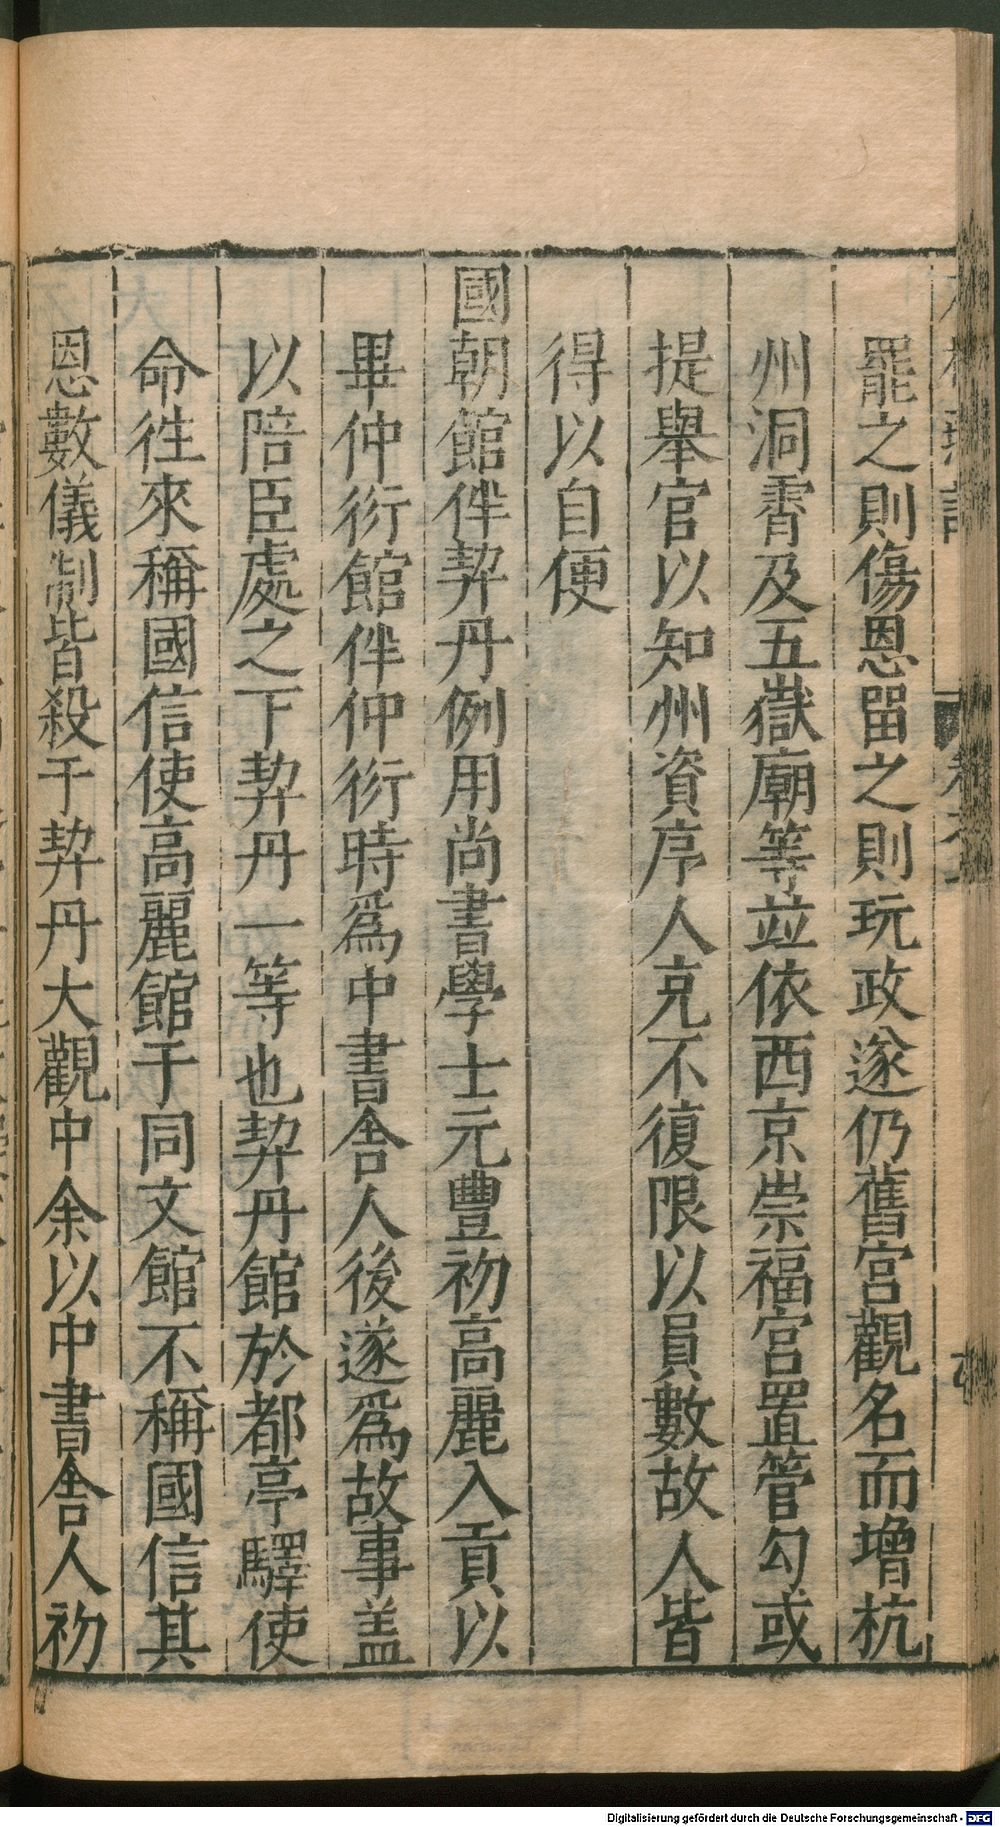 罷之則傷恩留之則玩政遂仍舊宮觀名而增杭
州洞霄及五嶽廟等並依西京崇福宮置管勾或
提舉官以知州資序人充不復限以員數故人皆
得以自便
國朝館伴契丹例用尚書學士元豐初高麗入貢以
畢仲衍館伴仲衍時爲中書舍人後遂爲故事盖
以陪臣處之下契丹一等也契丹館於都亭驛使
命徃來稱國信使高麗館于同文館不稱國信其
恩數儀制皆殺于契丹大觀中余以中書舍人初
Digitalisierung gefördert durch die Deutsche Forschungsgemeinschaft - DFG